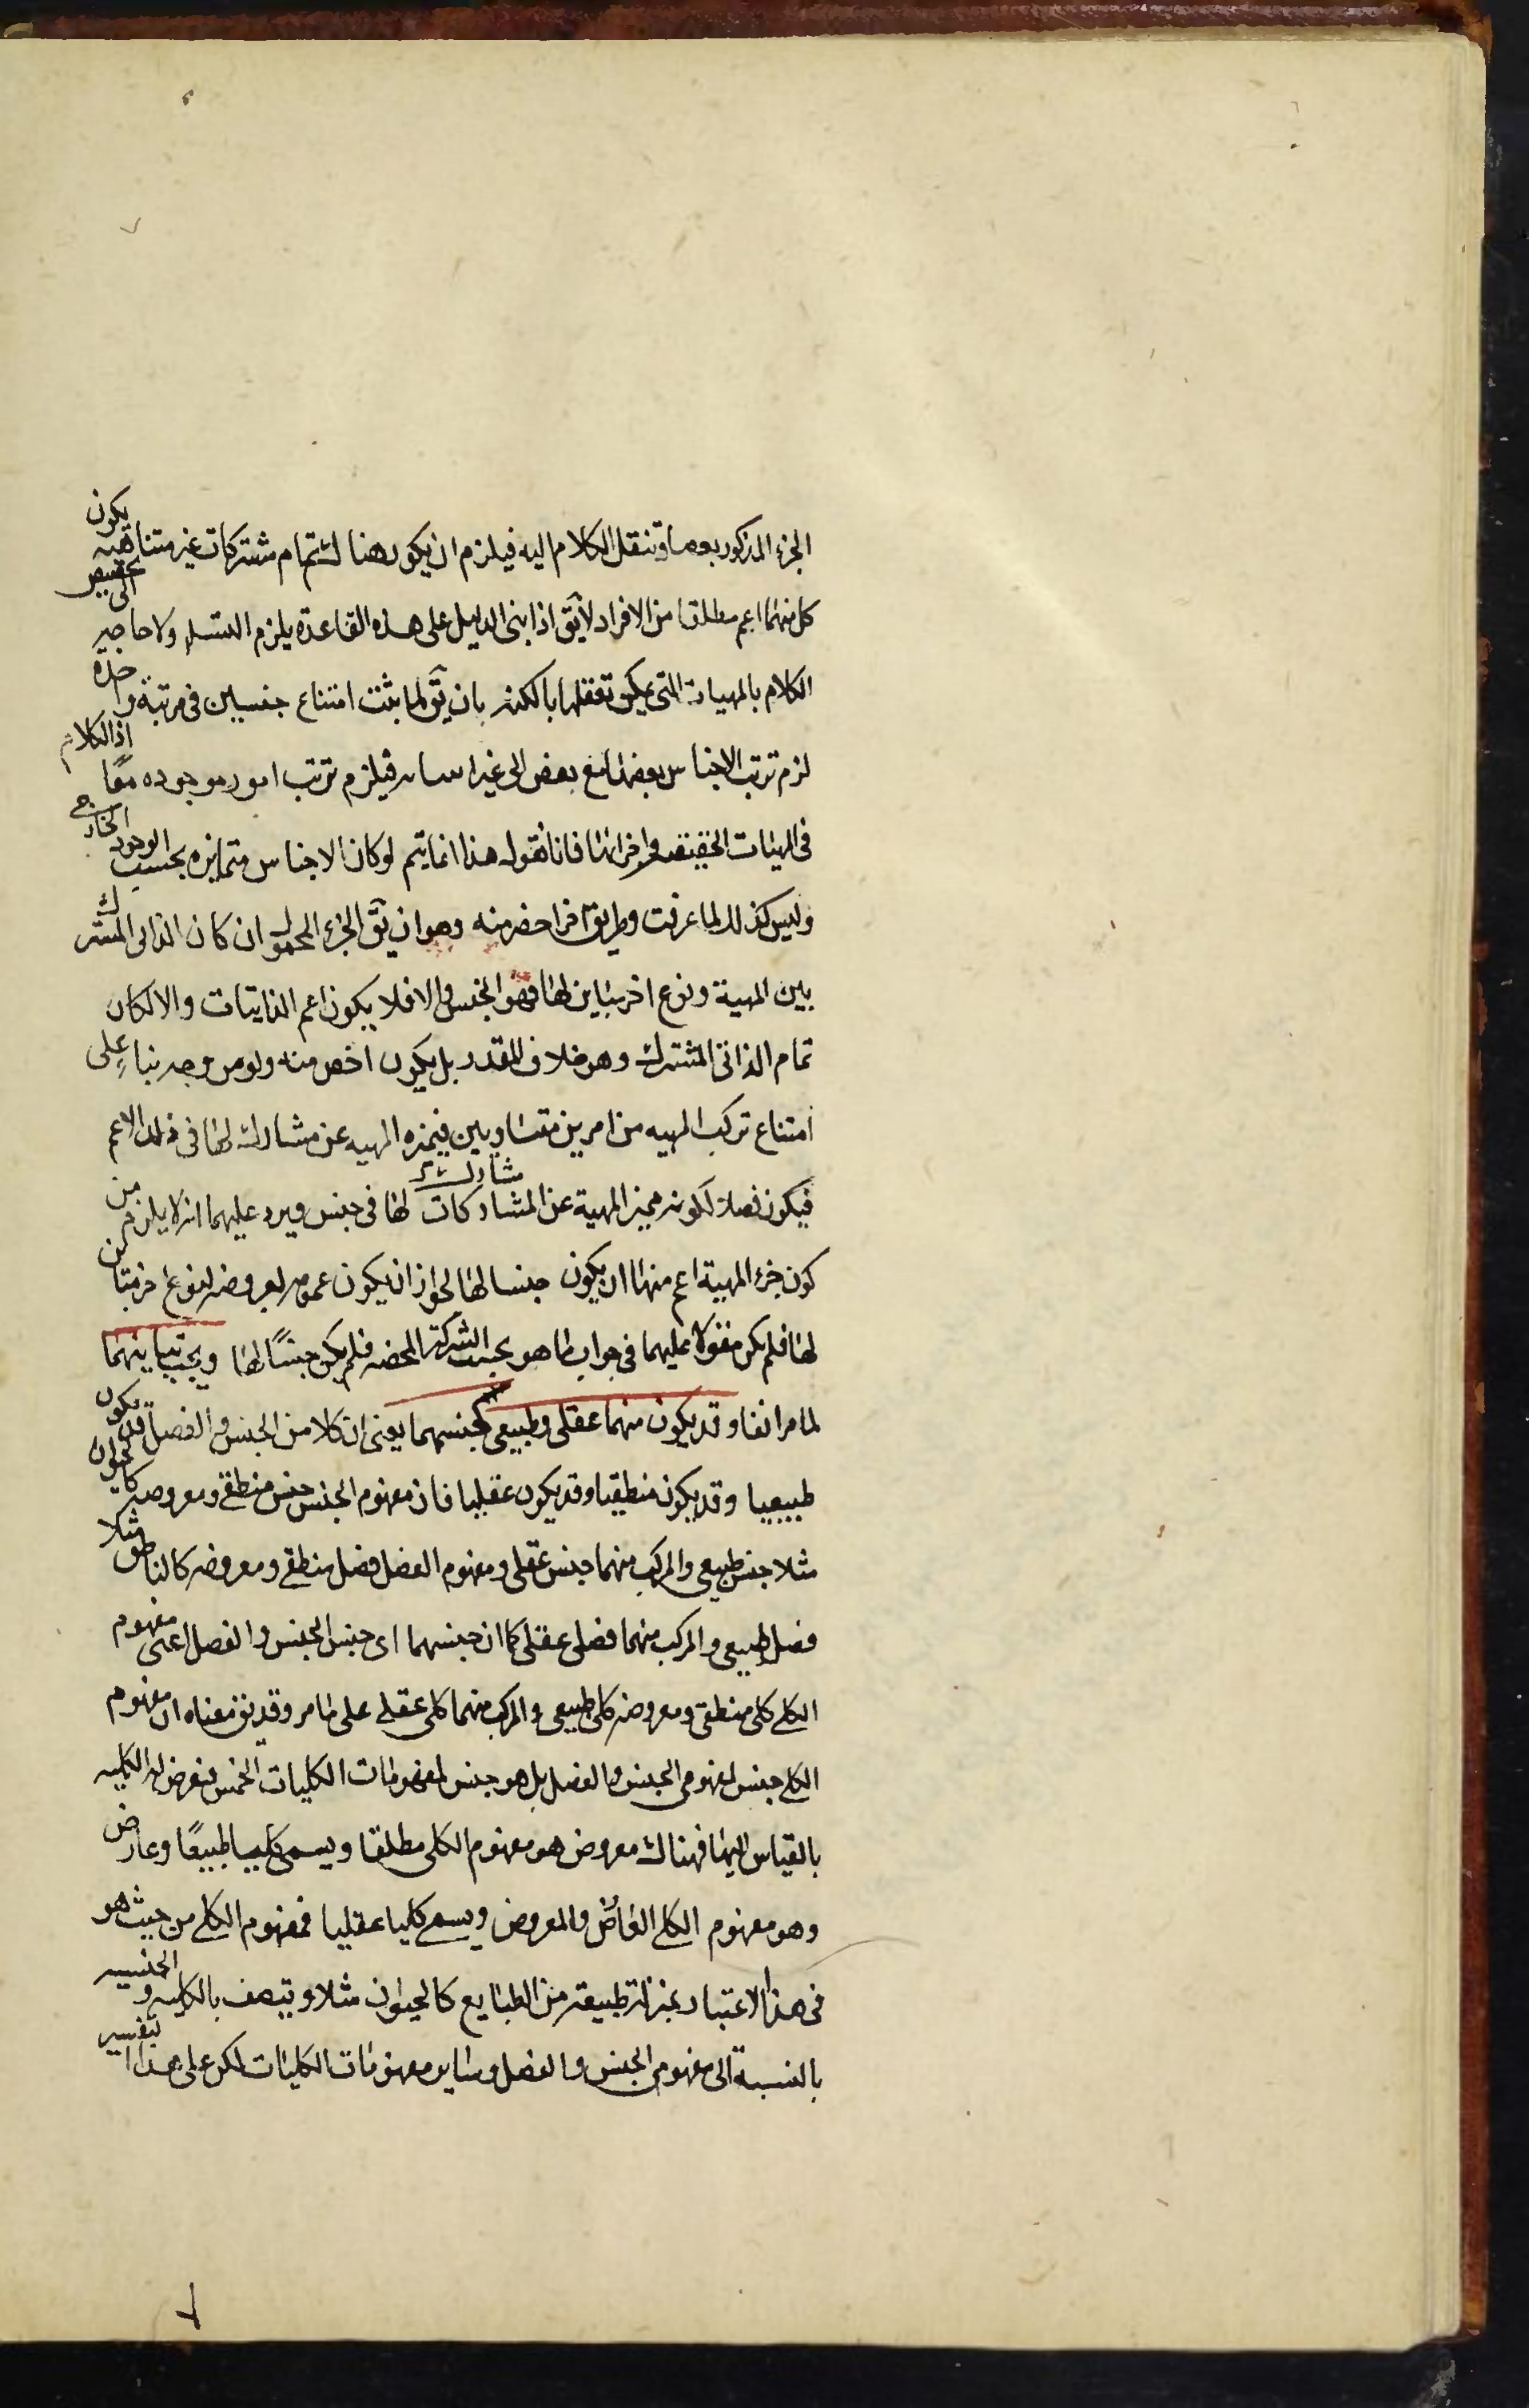 الجزء المذكور بعضا وتنقل الكلام اليه فيلزم ان يكون هناك تمام مشتركات غير متناهيه يكون
كل منها اعم مطلقا من الافراد لا يق اذا بنى الدليل على هذه القاعدة يلزم التسلسل ولا حاجة الى تخصيص
الكلام بالمهيات التى يمكن تعقلها بالكنه بان يق لما ثبت امتناع جنسين فى مرتبة واحدة
لزم ترتب الاجناس بعضها مع بعض الى غير النهايه فيلزم ترتب امور موجوده معا اذ الكلام
فى المهيات الحقيقه واجزائها فانا نقول هذا انما يتم لو كان الاجناس متمايزه بحسب الوجود الخارجى
وليس كذلك لما عرفت وطريق اخر اخصر منه وهو ان يق الجزء المحمول ان كان الذاتى المشترك
بين المهية ونوع اخر مباين لها فهو الجنس والا فلا يكون اعم الذاتيات والا لكان
تمام الذاتى المشترك وهو خلاف المقدر بل يكون اخص منه ولو من وجه بناء على
امتناع تركب المهيه من امرين متساويين فيميزه المهيه عن مشارك لها فى ذلك الاعم
فيكون فصلا لكونه مميز المهية عن المشاركات لها فى جنس ويرد عليهما انه لا يلزم من
مشارك
كون جزء المهية اعم منها ان يكون جنسا لها لجواز ان يكون عمومه لعروضه لنوع اخر مباين
لها فلم يكن مقولا عليهما فى جواب ما هو بحسب الشركة المحضه فلم يكن جنسا لها ويجب تباينهما
لما مر انفا وقد يكون منهما عقلى وطبيعى كجنسهما يعنى ان كلا من الجنس والفصل قد يكون
طبيعيا وقد يكون منطقيا وقد يكون عقليا فان مفهوم الجنس جنس منطقى ومعروضه كالحيوان
مثلا جنس طبيعى والمركب منهما جنس عقلى ومفهوم الفصل فصل منطقى ومعروضه كالناطق مثلا
فصل طبيعى والمركب منهما فصل عقلى كما ان جنسهما اى جنس الجنس والفصل اعنى مفهوم
الكلى كلى منطقى ومعروضه كلى طبيعى والمركب منهما كلى عقلى على ما مر وقد يق معناه ان مفهوم
الكلى جنس لمفهومى الجنس والفصل بل هو جنس لمفهومات الكليات الخمس فتعرض له الكليه
بالقياس اليها فهناك معروض هو مفهوم الكلى مطلقا ويسمى كليا طبيعيا وعارض
وهو مفهوم الكلى العارض والمعروض ويسمى كليا عقليا فمفهوم الكلى من حيث هو
فى هذا الاعتبار بمنزلة طبيعة من الطبايع كالحيوان مثلا ويتصف بالكليه والجنسيه
بالنسبة الى مفهومى الجنس والفصل وساير مفهومات الكليات لكن على هذا التفسير